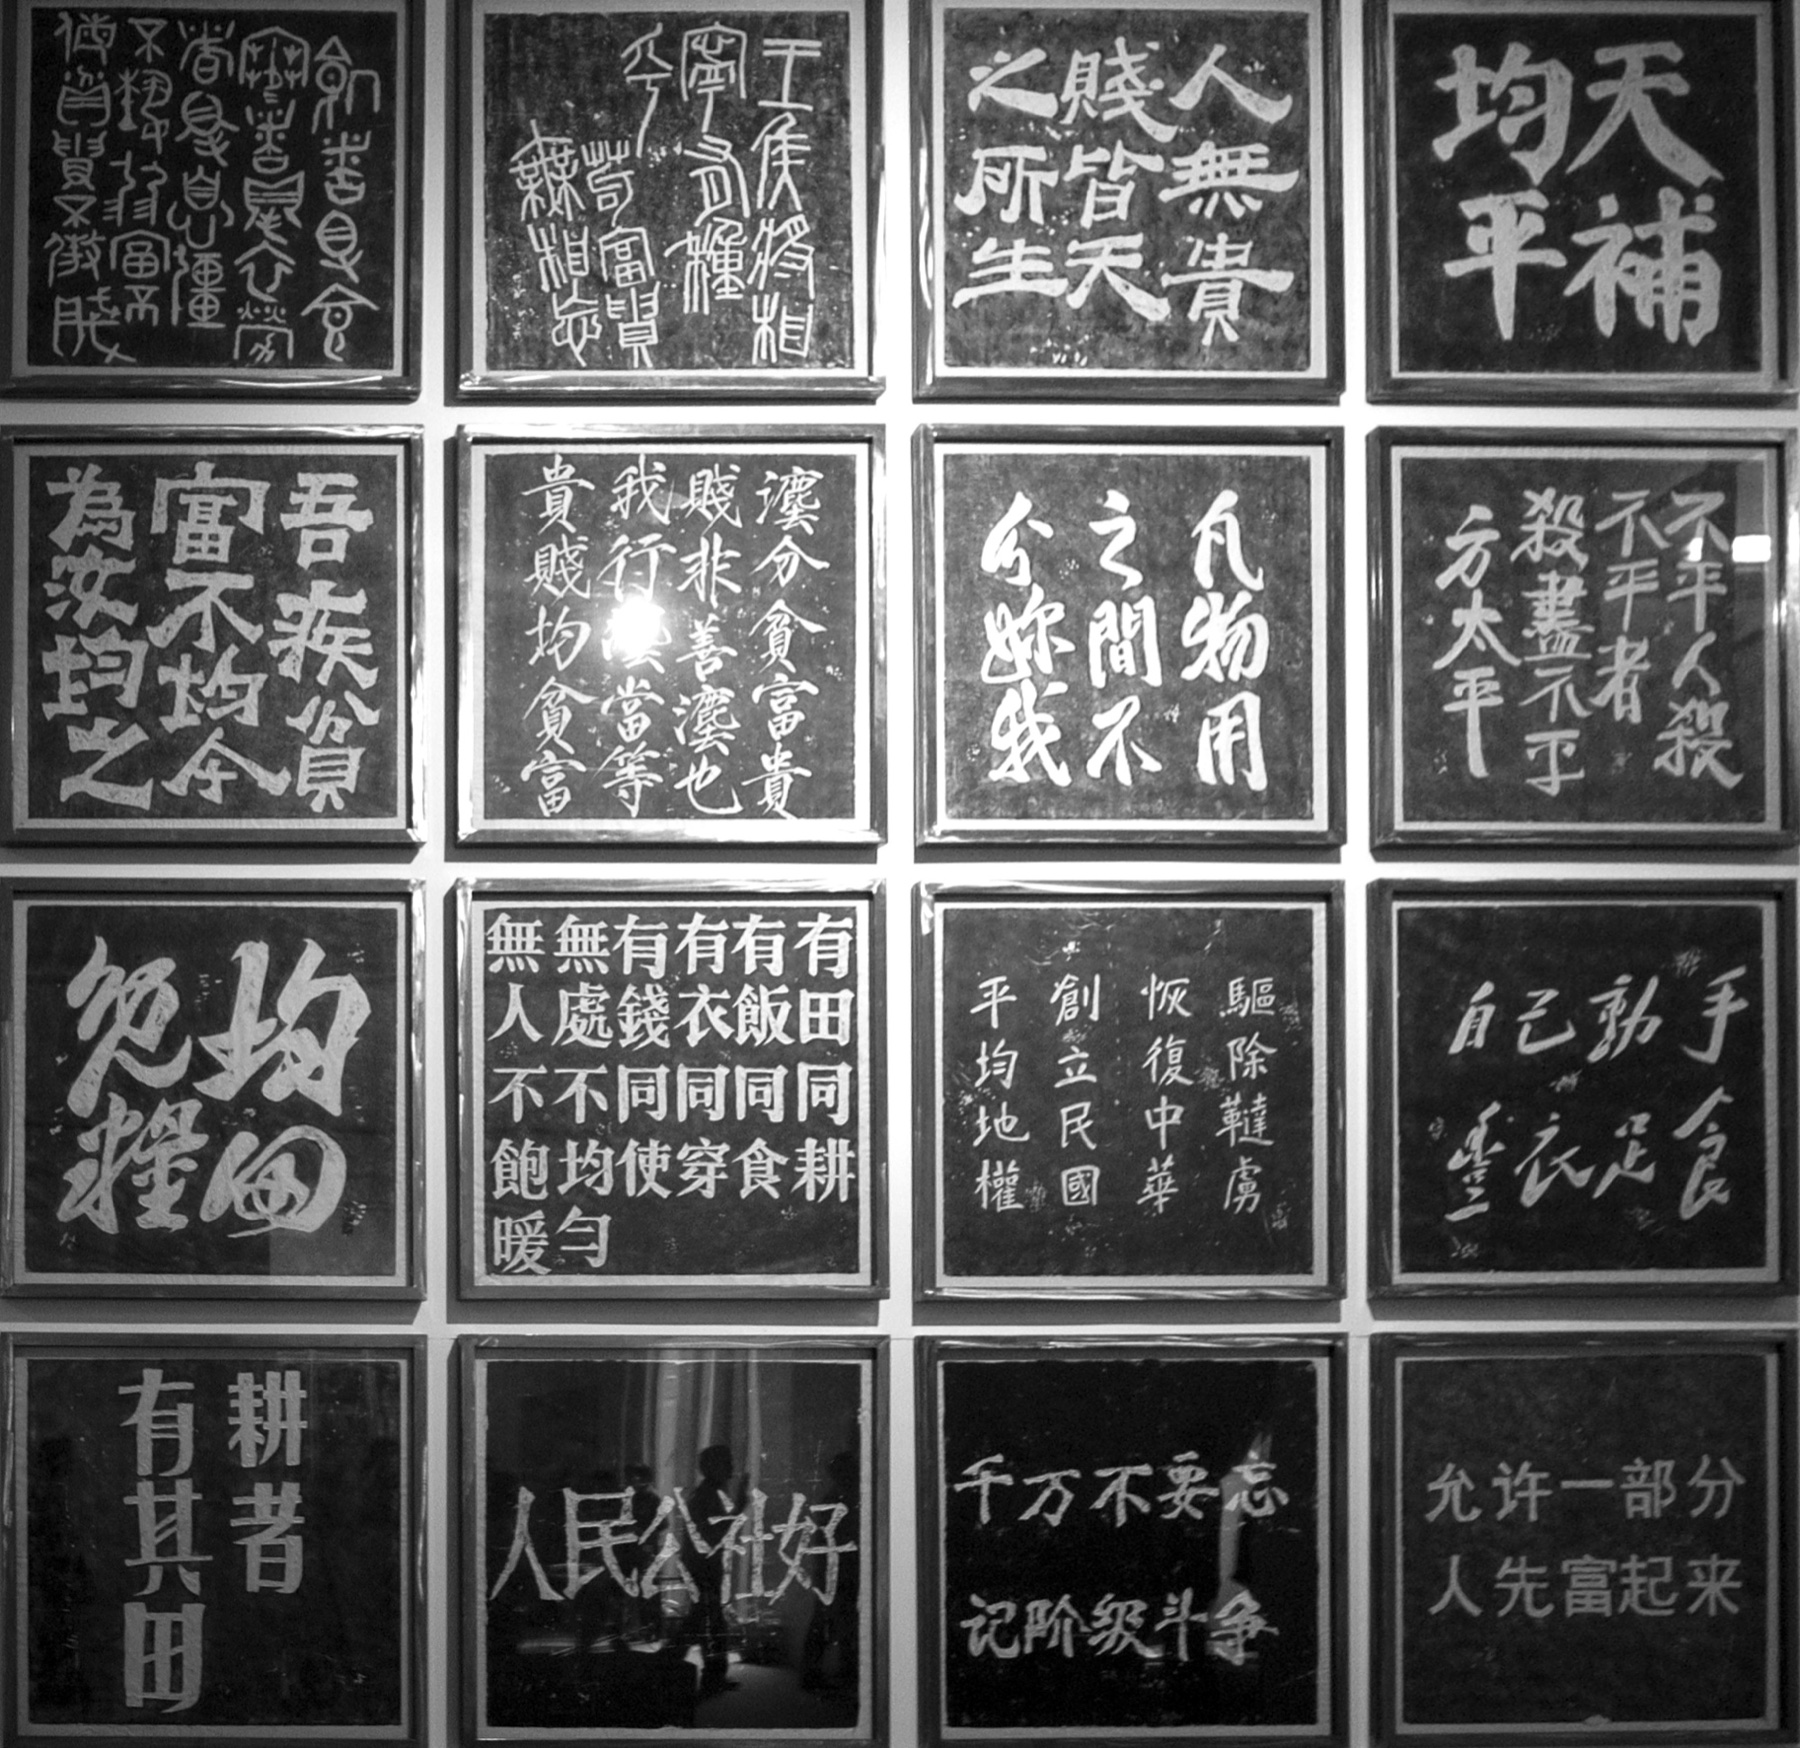 飢者得食
寒者得衣勞
者得息彊
不執弱富不
侮貧貴不傲賤
王侯將相
寧有種
乎
苟富貴
無相忘
人無貴
賤皆天
之所生
天補
均平
吾疾貧
富不均今
為汝均之
灋分貧富貴
賤非善灋也
我行灋當等
貴賤均貧富
凡物用
之間不
分妳我
不平人殺
不平者
殺盡不平
方太平
均田
免糧
有田同耕
有飯同食
有衣同穿
有錢同使
無處不均匀
無人不飽暖
驅除韃虜
恢復中華
創立民國
平均地權
自己動手
豐衣足食
耕者
有其田
人民公社好
千万不要忘
记阶级斗争
允许一部分
人先富起来